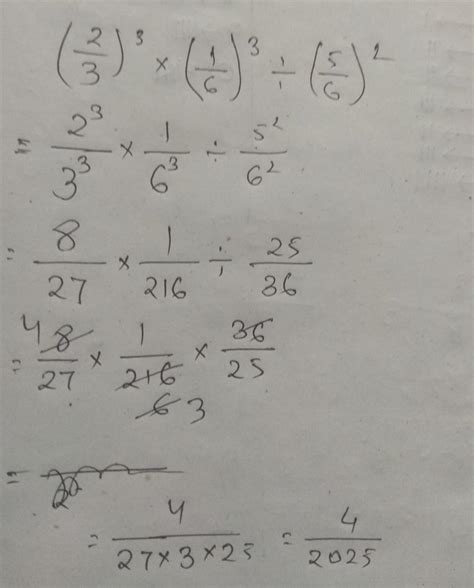 (2/3)³ × (1/6)³ ÷ (5/6)²
= 2³/3³ × 1/6³ ÷ 5²/6²
= 8/27 × 1/216 ÷ 25/36
= 4 8/27 × 1/216 × 36/25
6 3
=
= 4/(27×3×25) = 4/2025